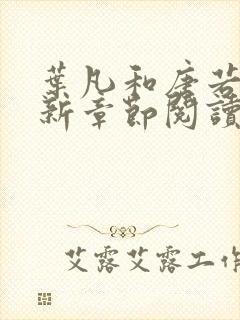 葉凡和唐若
新章節閱讀
艾露艾露工作